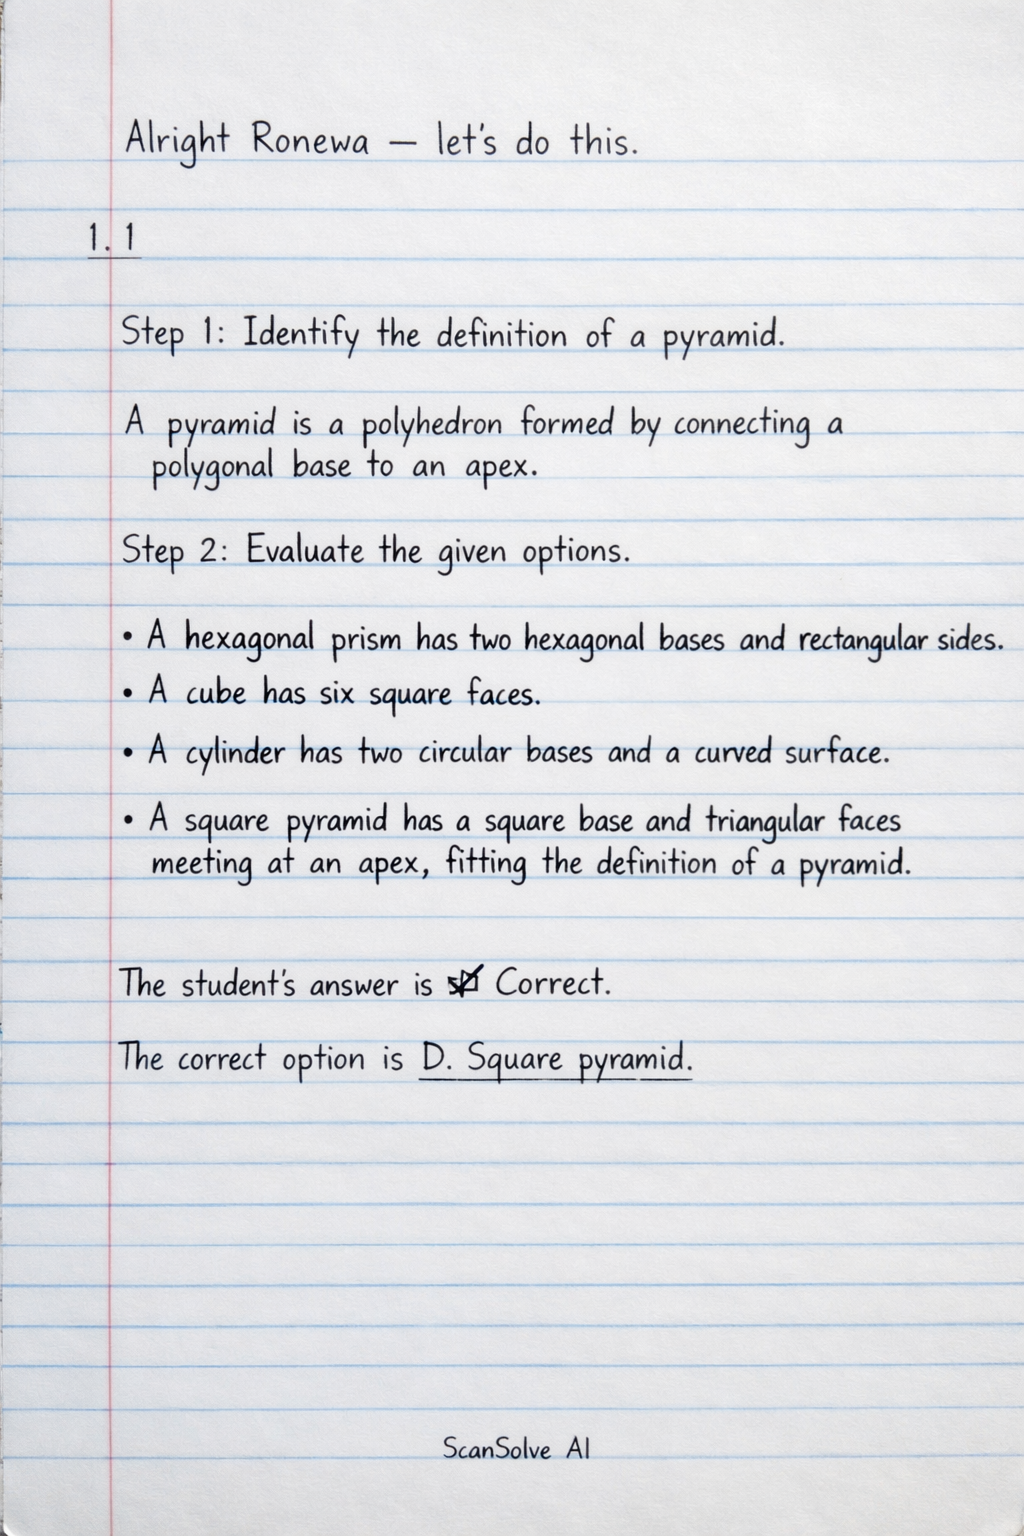 Alright Ronewa — let's do this.
1. 1
Step 1: Identify the definition of a pyramid.
A pyramid is a polyhedron formed by connecting a
polygonal base to an apex.
Step 2: Evaluate the given options.
• A hexagonal prism has two hexagonal bases and rectangular sides.
• A cube has six square faces.
• A cylinder has two circular bases and a curved surface.
• A square pyramid has a square base and triangular faces
meeting at an apex, fitting the definition of a pyramid.
The student's answer is Correct.
The correct option is D. Square pyramid.
ScanSolve AI